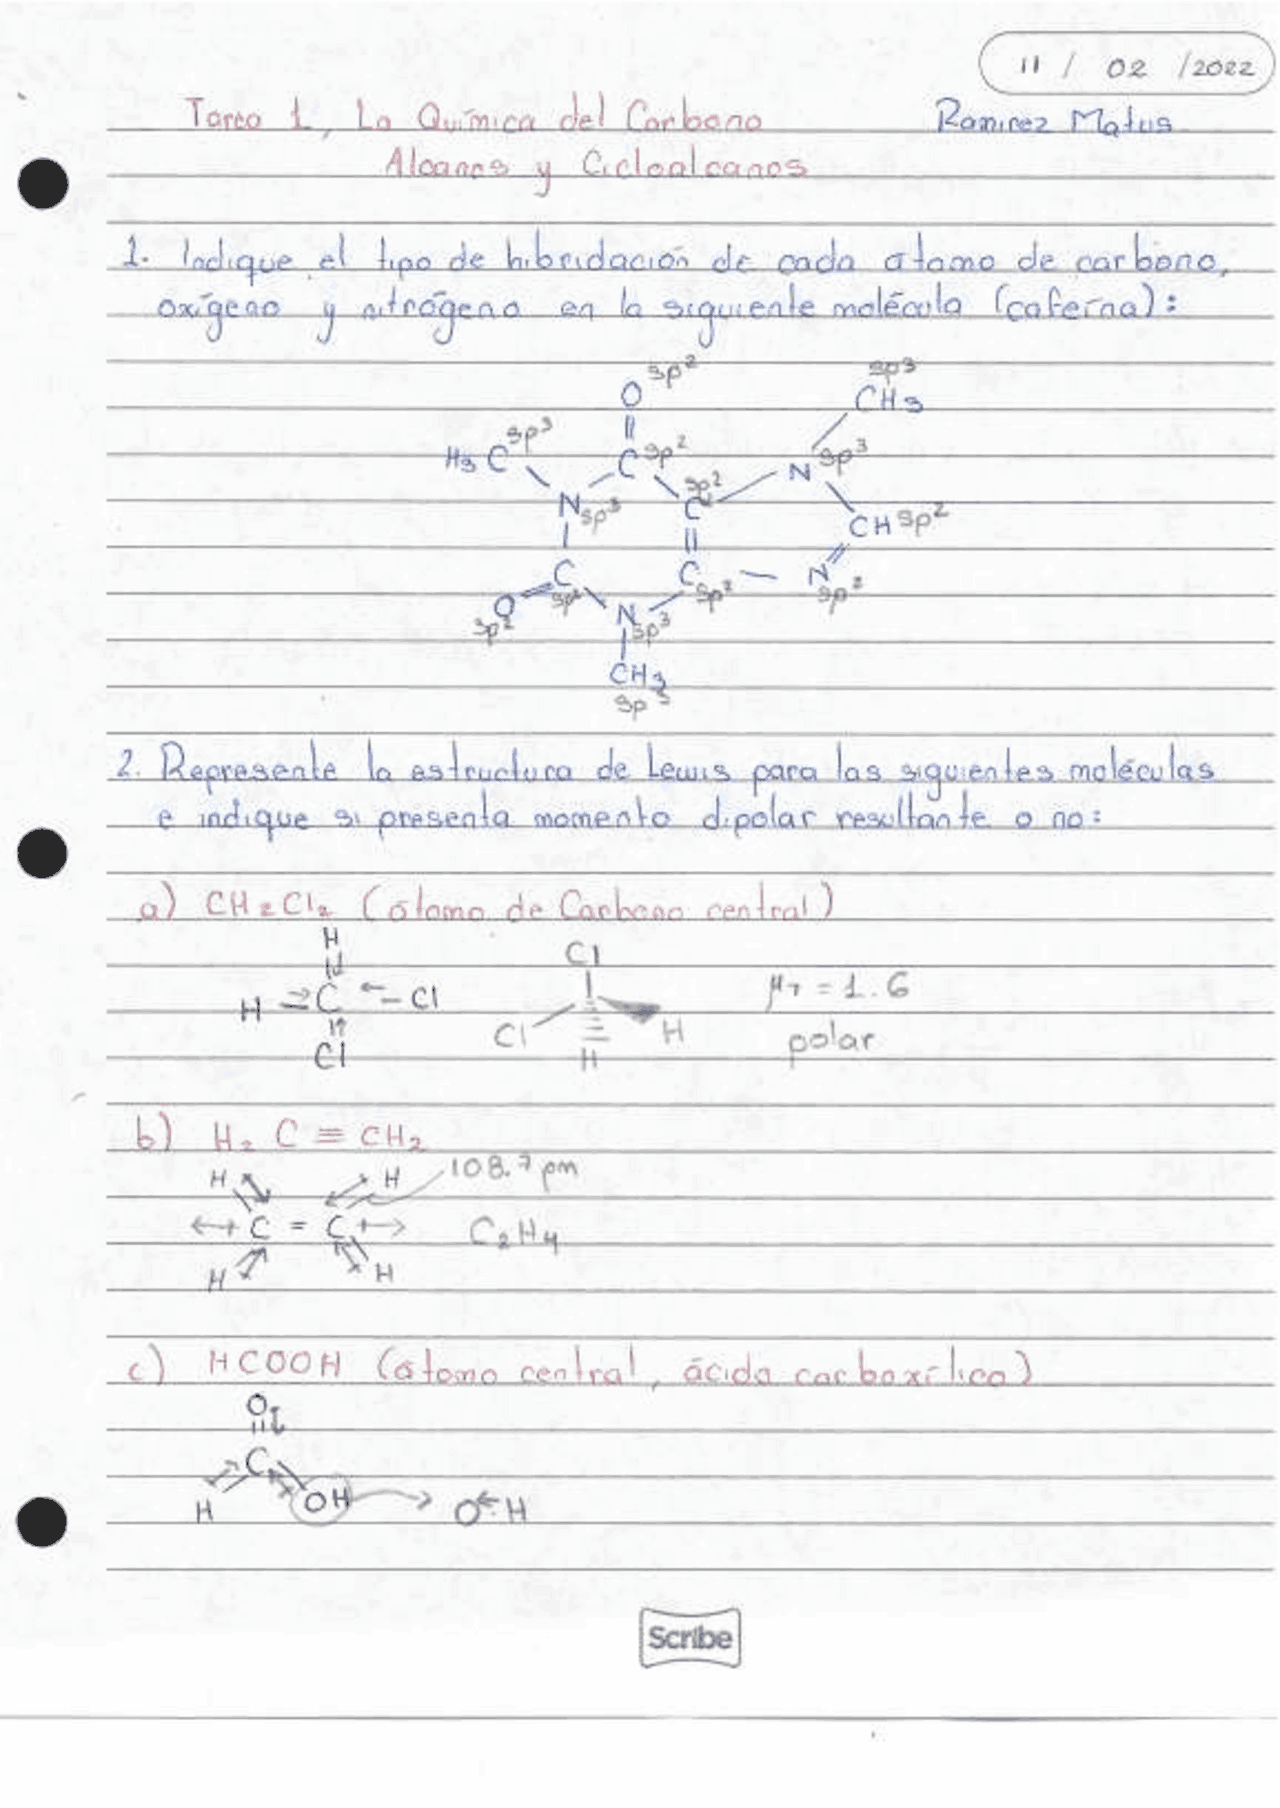 11 / 02 / 2022
Tarea 1, La Química del Carbono Ramirez Matus
Alcanos y Cicloalcanos
1. Indique el tipo de hibridación de cada átomo de carbono,
oxígeno y nitrógeno en la siguiente molécula (cafeína):
sp² sp³
O CH₃
sp³
H₃C C sp² N sp³
sp²
N sp³ C CH sp²
C C N
sp² sp² sp²
O N sp³
sp²
CH₃
sp³
2. Represente la estructura de Lewis para las siguientes moléculas
e indique si presenta momento dipolar resultante o no:
a) CH₂Cl₂ (átomo de Carbono central)
H Cl
H C Cl μT = 1.6
Cl Cl H polar
H
b) H₂C ≡ CH₂
H H 108.7 pm
C = C C₂H₄
H H
c) HCOOH (átomo central, ácido carboxílico)
O
C
H OH → O H
Scribe